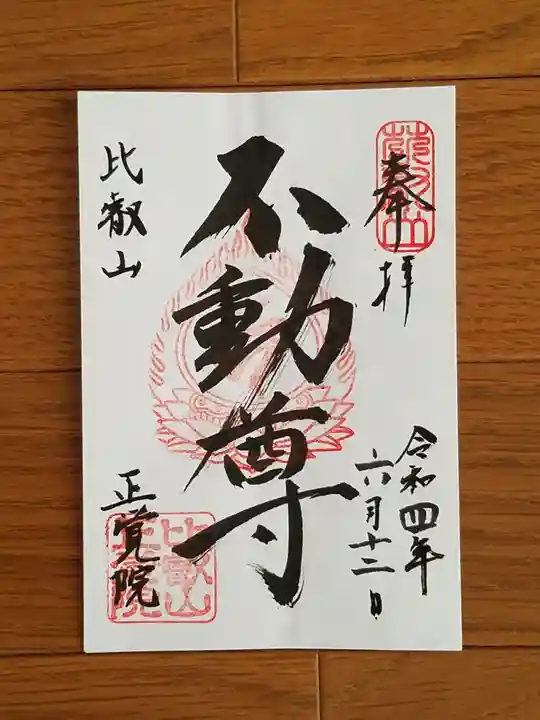 奉拝
令和四年
六月十二日
不動尊
比叡山
正覚院
比叡山
正覚院